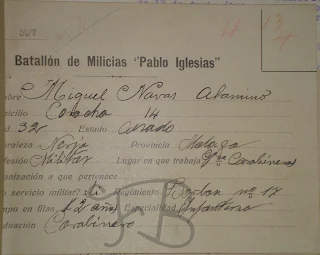 597
Batallón de Milicias "Pablo Iglesias"
mbre Miguel Navas Atamino
micilio Coracha 14
d 32 Estado Casado
uraleza Nerja Provincia Malaga
fesión Militar Lugar en que trabaja Carabineros
ganización a que pertenece
o servicio militar? si Regimiento Borbon nº 17
mpo en filas 12 años Especialidad Infanteria
duación Carabinero
FB